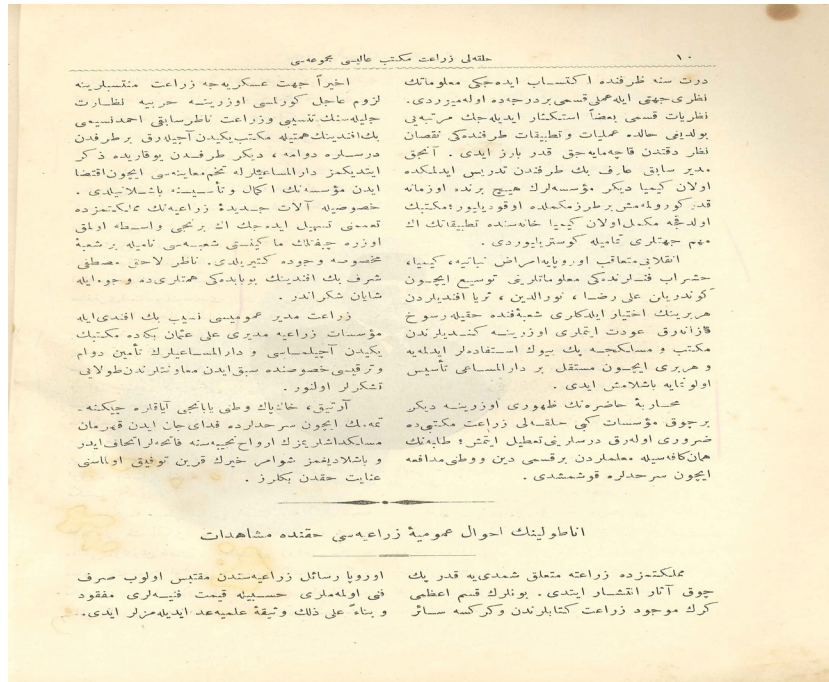 ١٠
حلقه‌لی زراعت مکتب عالیسی مجموعه‌سی
درت سنه ظرفنده اکتساب ایده‌جکی معلوماتك
نظری جهتی ایله عملی قسمی بر درجه‌ده اوله‌میوردی.
نظریات قسمی بعضاً استکثار ایدیله‌جك مرتبه‌یی
بولدیغی حالده عملیات و تطبیقات طرفنده‌کی نقصان
نظر دقتدن قاچه‌مایه‌جق قدر بارز ایدی . آنجق
مدیر سابق عارف بك طرفندن تدریس ایدلمکده
اولان کیمیا دیکر مؤسسه‌لرك هیچ برنده اوزمانه
قدر کورولمه‌مش بر طرز مکملده اوقودیلیور؛ مکتبك
اولدقجه مکمل اولان کیمیا خانه‌سنده تطبیقاتك اك
مهم جهتلری تمامیله کوستریلیوردی .
انقلابی متعاقب اوروپایه امراض نباتیه، کیمیا،
حشراب فنلرنده‌کی معلوماتلرینی توسیع ایچون
کوندریلن علی رضا ، نورالدین ، ثریا افندیلردن
هربرینك اختیار ایلدکلری شعبۀ فنده حقیله رسوخ
قازانه‌رق عودت ایتملری اوزرینه کندیلرندن
مکتب و مسلکجه پك بیوك استفاده‌لر ایدلمه‌یه
و هربری ایچون مستقل بر دارالمساعی تأسیس
اولونمایه باشلامش ایدی .
محاربۀ حاضره‌نك ظهوری اوزرینه دیکر
برچوق مؤسسات کبی حلقه‌لی زراعت مکتبی‌ده
ضروری اوله‌رق درسلرینی تعطیل ایتمش؛ طلبه‌نك
همان کافه‌سیله معلملردن برقسمی دین و وطنی مدافعه
ایچون سرحدلره قوشمشدی .
اخیراً جهت عسکریه‌جه زراعت منتسبلرینه
لزوم عاجل کورلمسی اوزرینه حربیه نظارت
جلیله‌سنك تنسیبی و زراعت ناظر سابقی احمد نسیمی
بك افندینك همتیله مکتب یکیدن آچیله‌رق بر طرفدن
درسلره دوامه ، دیکر طرفدن یوقاریده ذکر
ایتدیکمز دارالمساعیلرله تخم معاینه‌سی ایچون اقتضا
ایدن مؤسسه‌نك اکمال و تأسیسنه باشلانیلدی .
خصوصیله آلات جدیدۀ زراعیه‌نك مملکتمزده
تعممنی تسهیل ایده‌جك اك برنجی واسطه اولمق
اوزره چیفتلك ماکینستی شعبه‌سی نامیله بر شعبۀ
مخصوصه وجوده کتیریلدی. ناظر لاحق مصطفی
شرف بك افندینك بوبابده‌کی همتلری‌ده وجوه‌ایله
شایان شکراندر .
زراعت مدیر عمومیسی نسیب بك افندی‌ایله
مؤسسات زراعیه مدیری علی عثمان بکده مکتبك
یکیدن آچیلماسی و دارالمساعیلرك تأمین دوام
و ترقیسی خصوصنده سبق ایدن معاونتلرندن طولایی
تشکرلر اولنور .
آرتیق، خاك‌پاك وطنی یابانجی آیاقلره چیکنه‌
تمه‌مك ایچون سرحدلرده فدای جان ایدن قهرمان
مسلکداشلریمزك ارواح نجیبه‌سنه فاتحه‌لر اتحاف ایدر
و باشلادیغمز شو امر خیرك قرین توفیق اولماسنی
عنایت حقدن بکلرز .
اناطولینك احوال عمومیۀ زراعیه‌سی حقنده مشاهدات
مملکتمزده زراعته متعلق شمدی‌یه قدر پك
چوق آثار انتشار ایتدی . بونلرك قسم اعظمی
کرك موجود زراعت کتابلرندن و کرکسه سائر
اوروپا رسائل زراعیه‌سندن مقتبس اولوب صرف
فنی اولمه‌لری حسبیله قیمت فنیه‌لری مفقود
و بناءً علی ذلك وثیقۀ علمیه عد ایدیله‌مزلر ایدی.